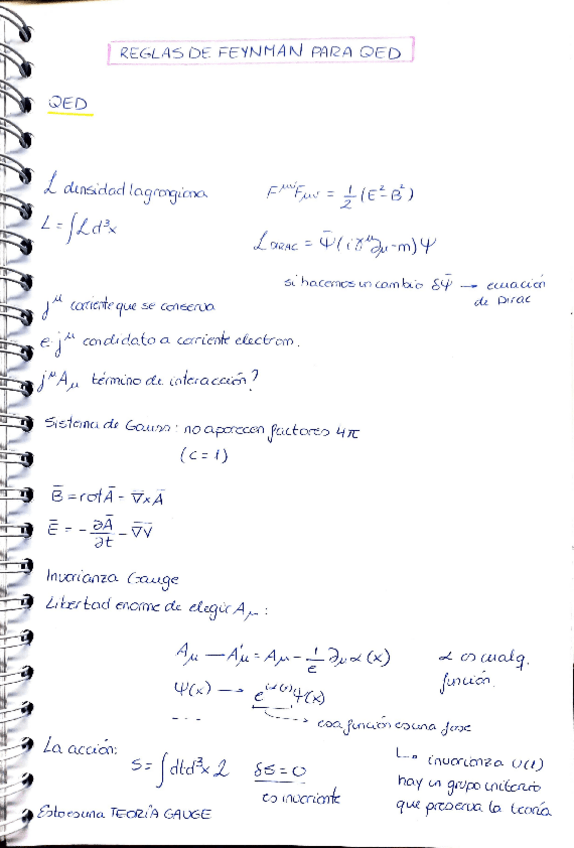 REGLAS DE FEYNMAN PARA QED
QED
ℒ densidad lagrangiana
F^μν F_μν = 1/2 (E² - B²)
L = ∫ ℒ d³x
ℒ_DIRAC = Ψ̄ (iγ^μ ∂_μ - m) Ψ
si hacemos un cambio δΨ̄ → ecuación
de Dirac
j^μ corriente que se conserva
e·j^μ candidato a corriente electrom.
j^μ A_μ término de interacción?
Sistema de Gauss: no aparecen factores 4π
(c = 1)
B̄ = rot Ā - ∇̄ x Ā
Ē = - ∂Ā/∂t - ∇̄V
Invarianza Gauge
Libertad enorme de elegir A_μ :
A_μ — A'_μ = A_μ - 1/e ∂_μ α(x)
α es cualq.
función.
Ψ(x) → e^iα(x) Ψ(x)
- - -
esa función es una fase
La acción:
S = ∫ dt d³x ℒ
δS = 0
es invariante
↳ invarianza U(1)
hay un grupo unitario
que preserva la teoría
Esto es una TEORÍA GAUGE